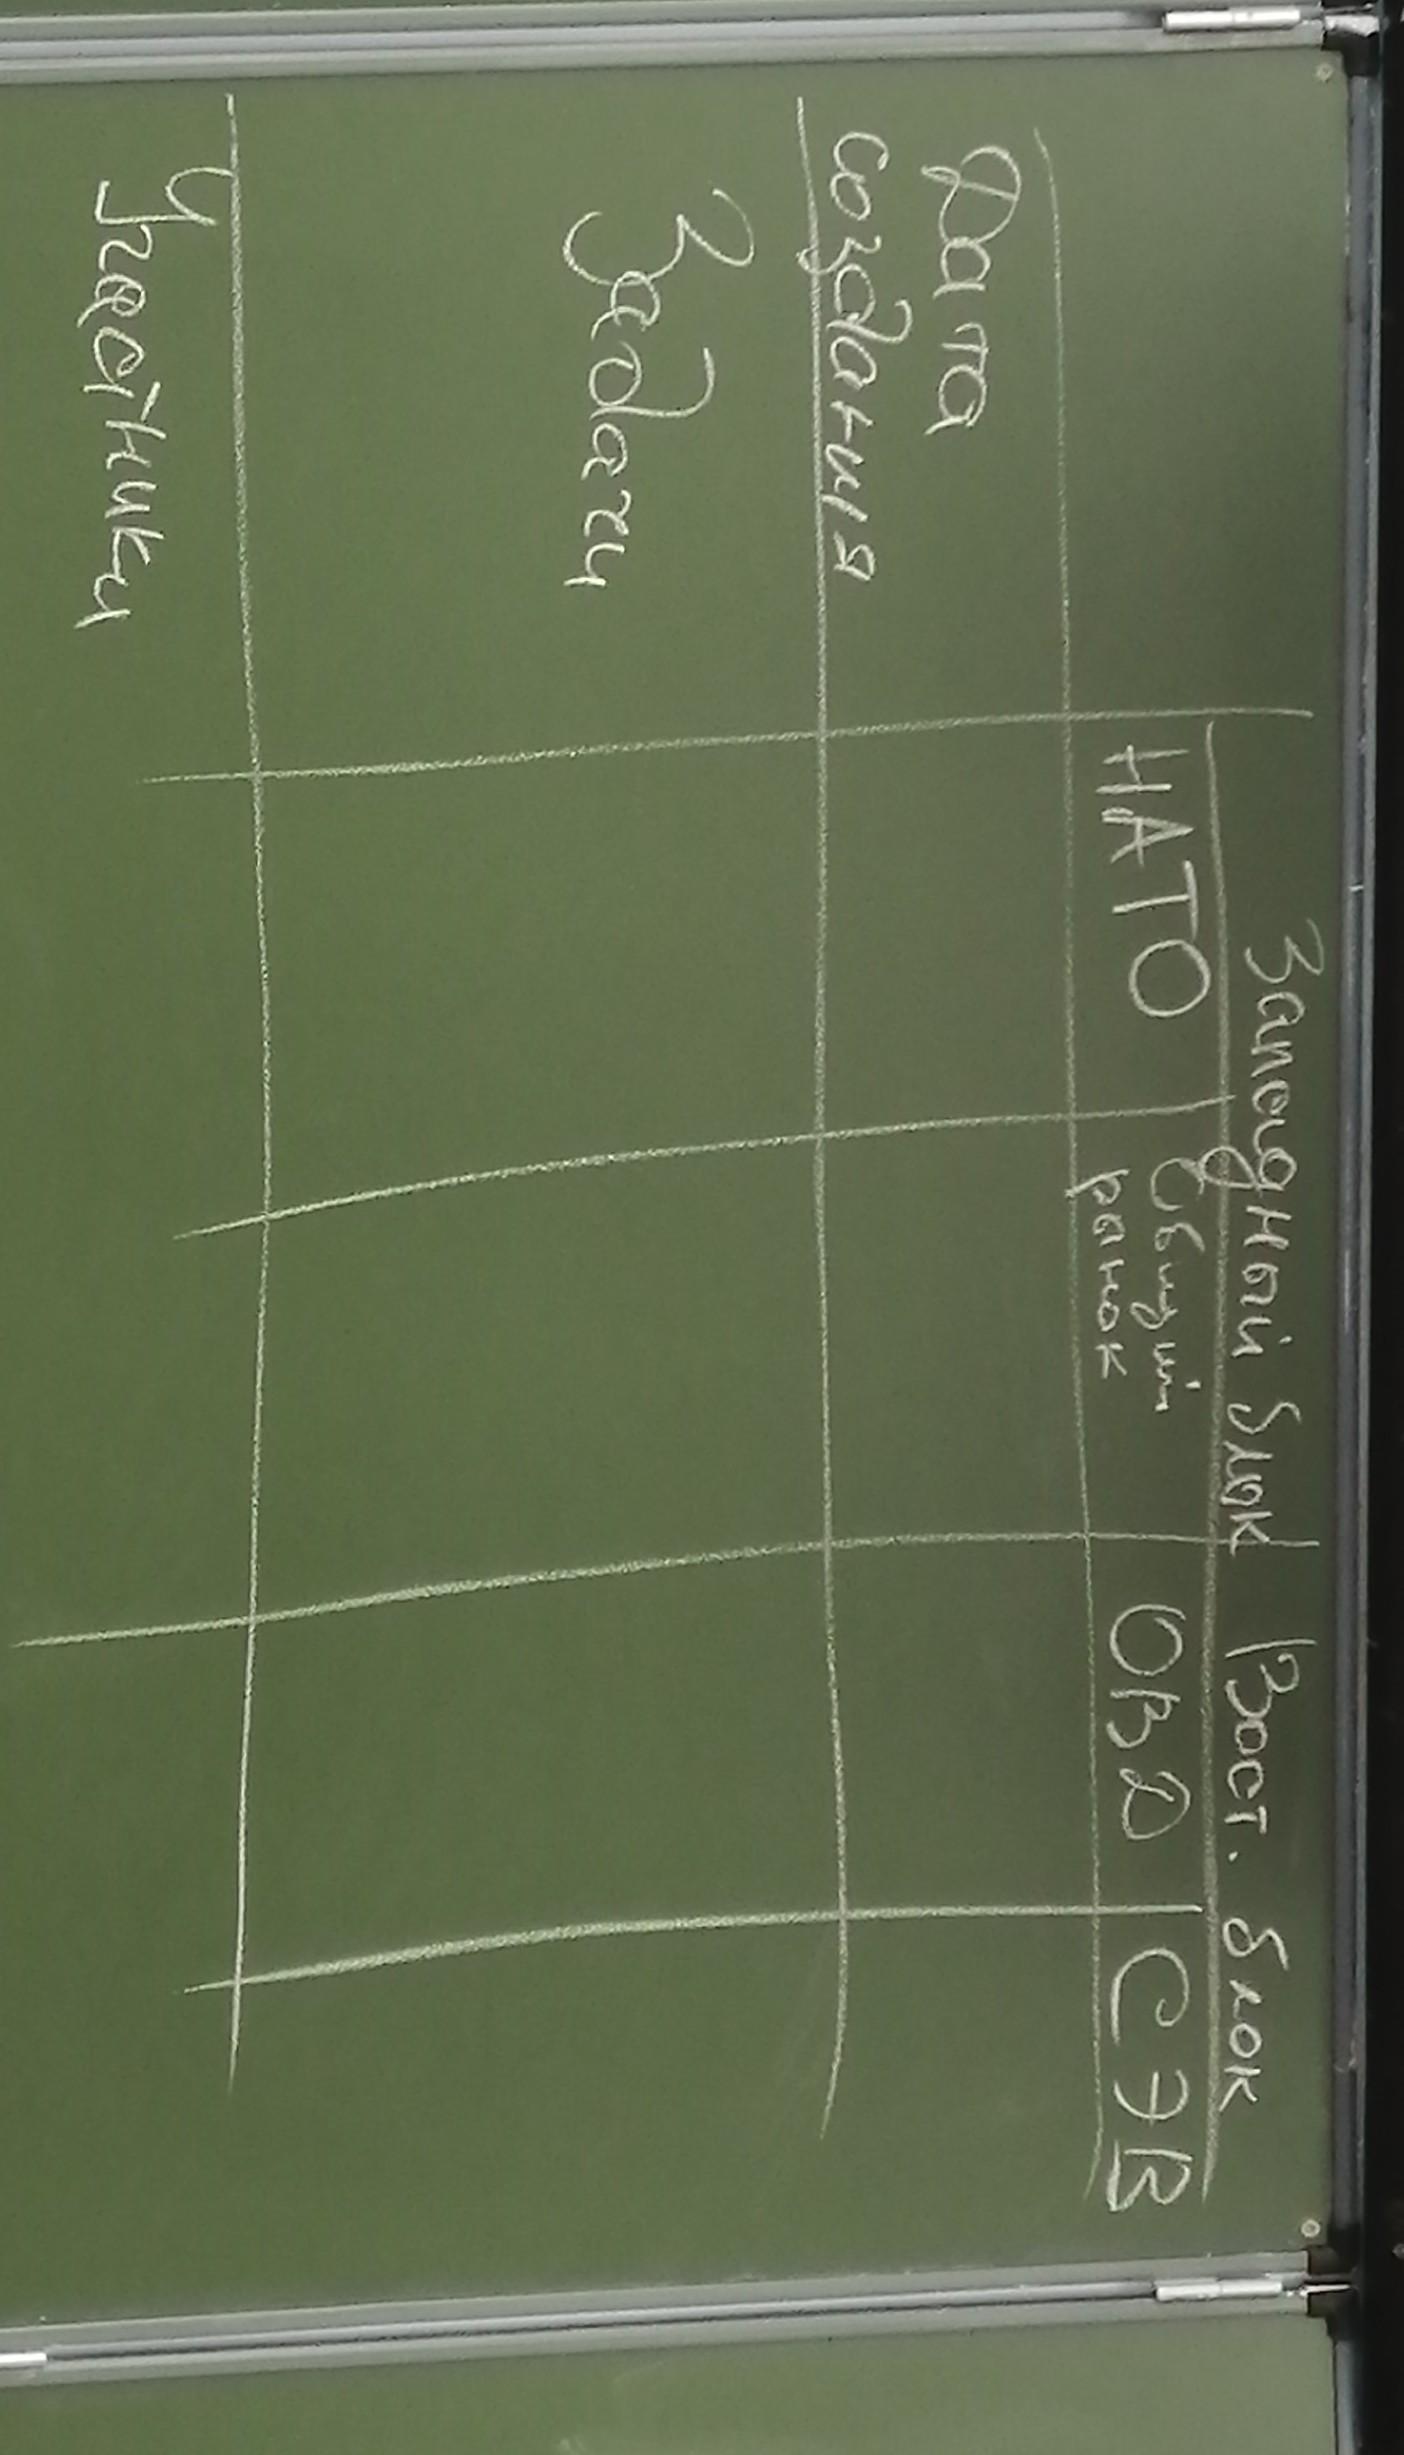 Западный блок Вост. блок
НАТО Общий рынок ОВД СЭВ
Дата
создания
Задачи
Участники